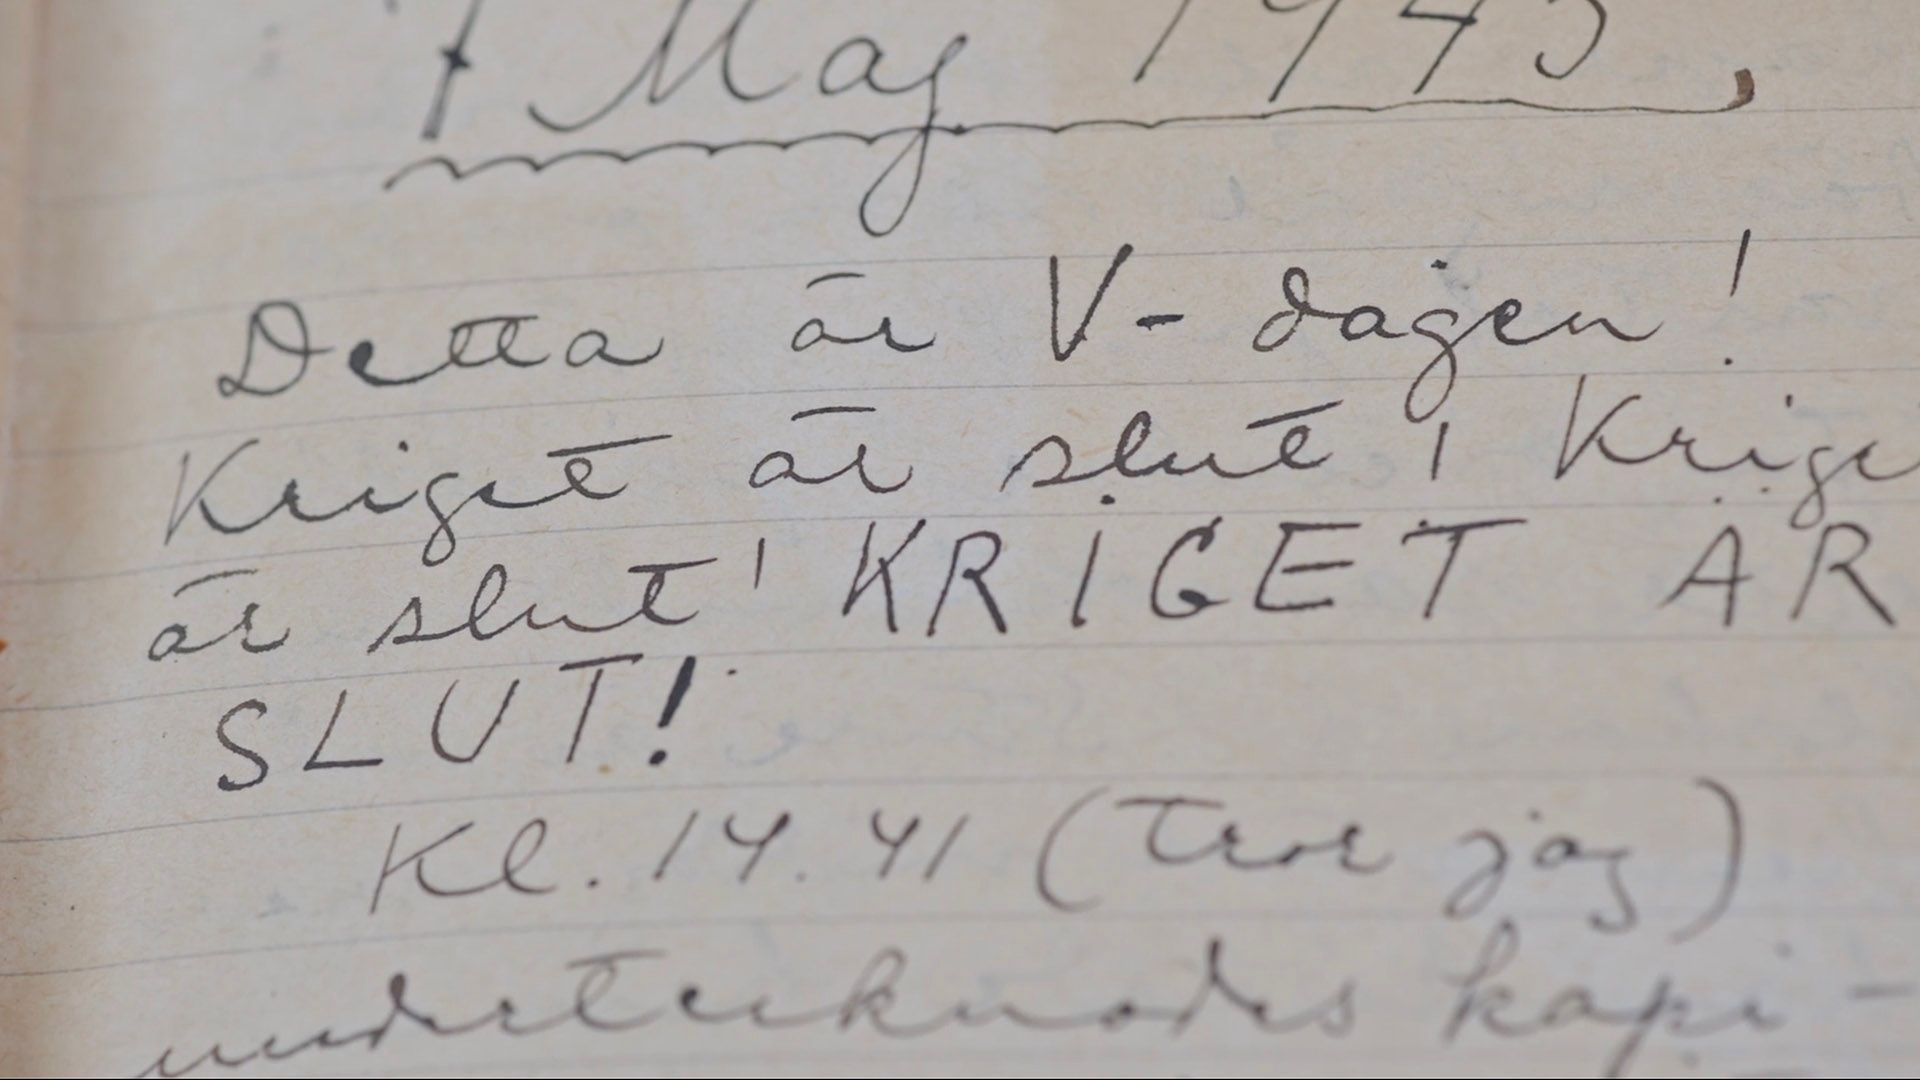 7 Maj 1945
Detta är V-dagen!
Kriget är slut! Kriget
är slut! KRIGET ÄR
SLUT!
Kl. 14.41 (tror jag)
undertecknades kapi-